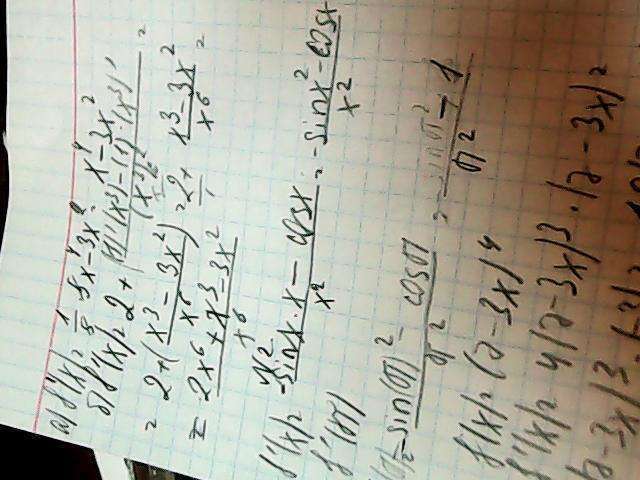 а) f'(x) = 1/5 · 5x⁴ - 3x² = x⁴ - 3x²
б) f'(x) = 2 + ((1)'(x³) - (1)·(x³)')/(x³)² =
= 2 + (x³ - 3x²)/x⁶ = 2 + (x³ - 3x²)/x⁶ =
= (2x⁶ + x³ - 3x²)/x⁶
f'(x) = (-sinx · x - cosx)/x² = (-sinx² - cosx)/x²
f'(π)
= (-sin(π)² - cosπ)/π² = (-sinπ² + 1)/π²
f(x) = (2 - 3x)⁴
f'(x) = 4(2 - 3x)³ · (2 - 3x)
(2 - 3x)³